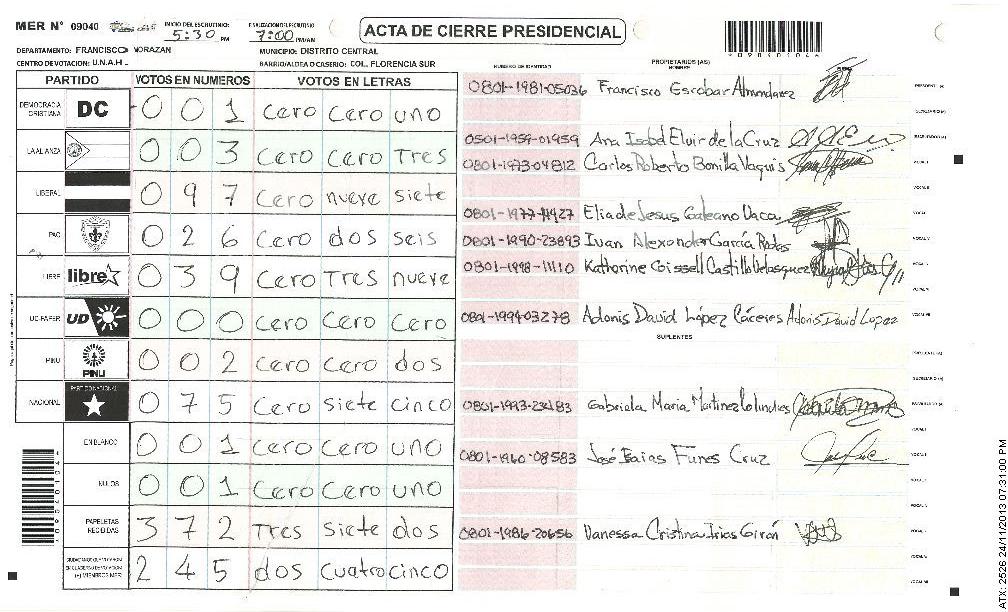 MER N° 09040 INICIO DEL ESCRUTINIO 5:30 PM FINALIZACION DEL ESCRUTINIO 7:00 PM/AM ACTA DE CIERRE PRESIDENCIAL
DEPARTAMENTO: FRANCISCO MORAZAN MUNICIPIO: DISTRITO CENTRAL
CENTRO DE VOTACION: U.N.A.H. BARRIO/ALDEA O CASERIO: COL. FLORENCIA SUR
PARTIDO VOTOS EN NUMEROS VOTOS EN LETRAS
NUMERO DE IDENTIDAD PROPIETARIOS (AS) NOMBRE
DEMOCRACIA CRISTIANA DC 0 0 1 Cero Cero uno
LA ALIANZA 0 0 3 Cero Cero Tres
LIBERAL 0 9 7 Cero nueve siete
PAC 0 2 6 Cero dos seis
LIBRE libre 0 3 9 Cero Tres nueve
UD-FAPER UD 0 0 0 Cero Cero Cero
PINU PINU 0 0 2 Cero Cero dos
NACIONAL PARTIDO NACIONAL 0 7 5 Cero siete cinco
EN BLANCO 0 0 1 Cero Cero uno
NULOS 0 0 1 Cero Cero uno
PAPELETAS RECIBIDAS 3 7 2 Tres siete dos
2 4 5 dos cuatro cinco
0801-1981-05036 Francisco Escobar
0501-1959-01959 Ana Isabel Elvir de la Cruz
0801-1973-04812 Carlos Roberto Bonilla
Elia de Jesus Galeano Vaca
0801-1990-23893 Ivan Alexander García
0801-1998-11110 Katherine Castillo Velasquez
0801-1994-03278 Adonis David López Cáceres Adonis David Lopez
SUPLENTES
Gabriela Maria Martinez
0801-1960-08583 José Isaias Funes Cruz
0801-1986-20656 Vanessa Cristina Irias Girón
ATX: 2526 24/11/2013 07:31:00 PM